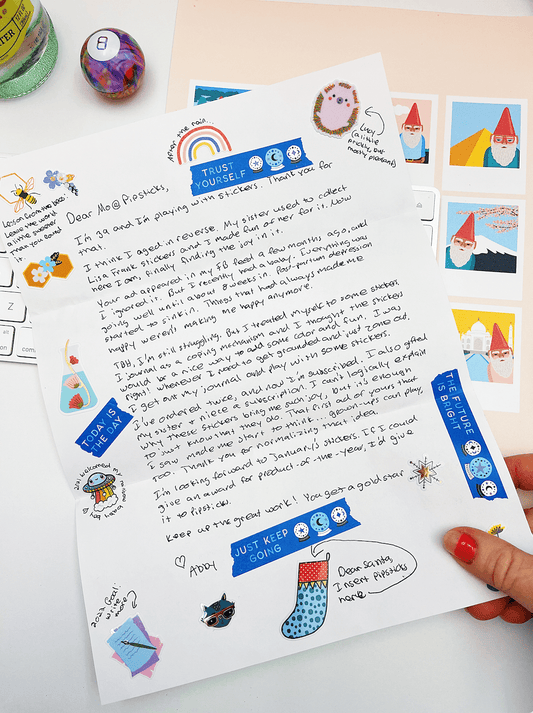 After the rain...
TRUST
YOURSELF
Lucy
(a little
prickly, but
mostly pleasant)
Lesson from the bees:
Leave the world
a little sweeter
than you found
Dear Mo@Pipsticks,
I'm 39 and I'm playing with stickers. Thank you for
that.
I think I aged in reverse. My sister used to collect
Lisa Frank stickers and I made fun of her for it. Now
here I am, finally finding the joy in it.
Your ad appeared in my FB feed a few months ago, and
I ignored it. But I recently had a baby. Everything was
going well until about 8 weeks in. Post-partum depression
started to sink in. Things that had always made me
happy weren't making me happy anymore.
TBH, I'm still struggling. But I treated myself to some stickers.
I journal as a coping mechanism and I thought the stickers
would be a nice way to add some color and fun. I was
right! Whenever I need to get grounded and just zone out,
I get out my journal and play with some stickers.
I've ordered twice, and now I'm subscribed. I also gifted
my sister + niece a subscription. I can't logically explain
why these stickers bring me such joy, but it's enough
to just know that they do. That first ad of yours that
I saw made me start to think... grown-ups can play,
too. Thank you for normalizing that idea.
I'm looking forward to January's stickers. If I could
give an award for product-of-the-year, I'd give
it to Pipsticks.
Keep up the great work! You get a gold star
♡ Addy
TODAY IS
THE DAY
THE FUTURE
IS BRIGHT
2021 welcomed my
JUST KEEP
GOING
Dear Santa,
Insert Pipsticks
here
2022 Goal:
Write
more
8